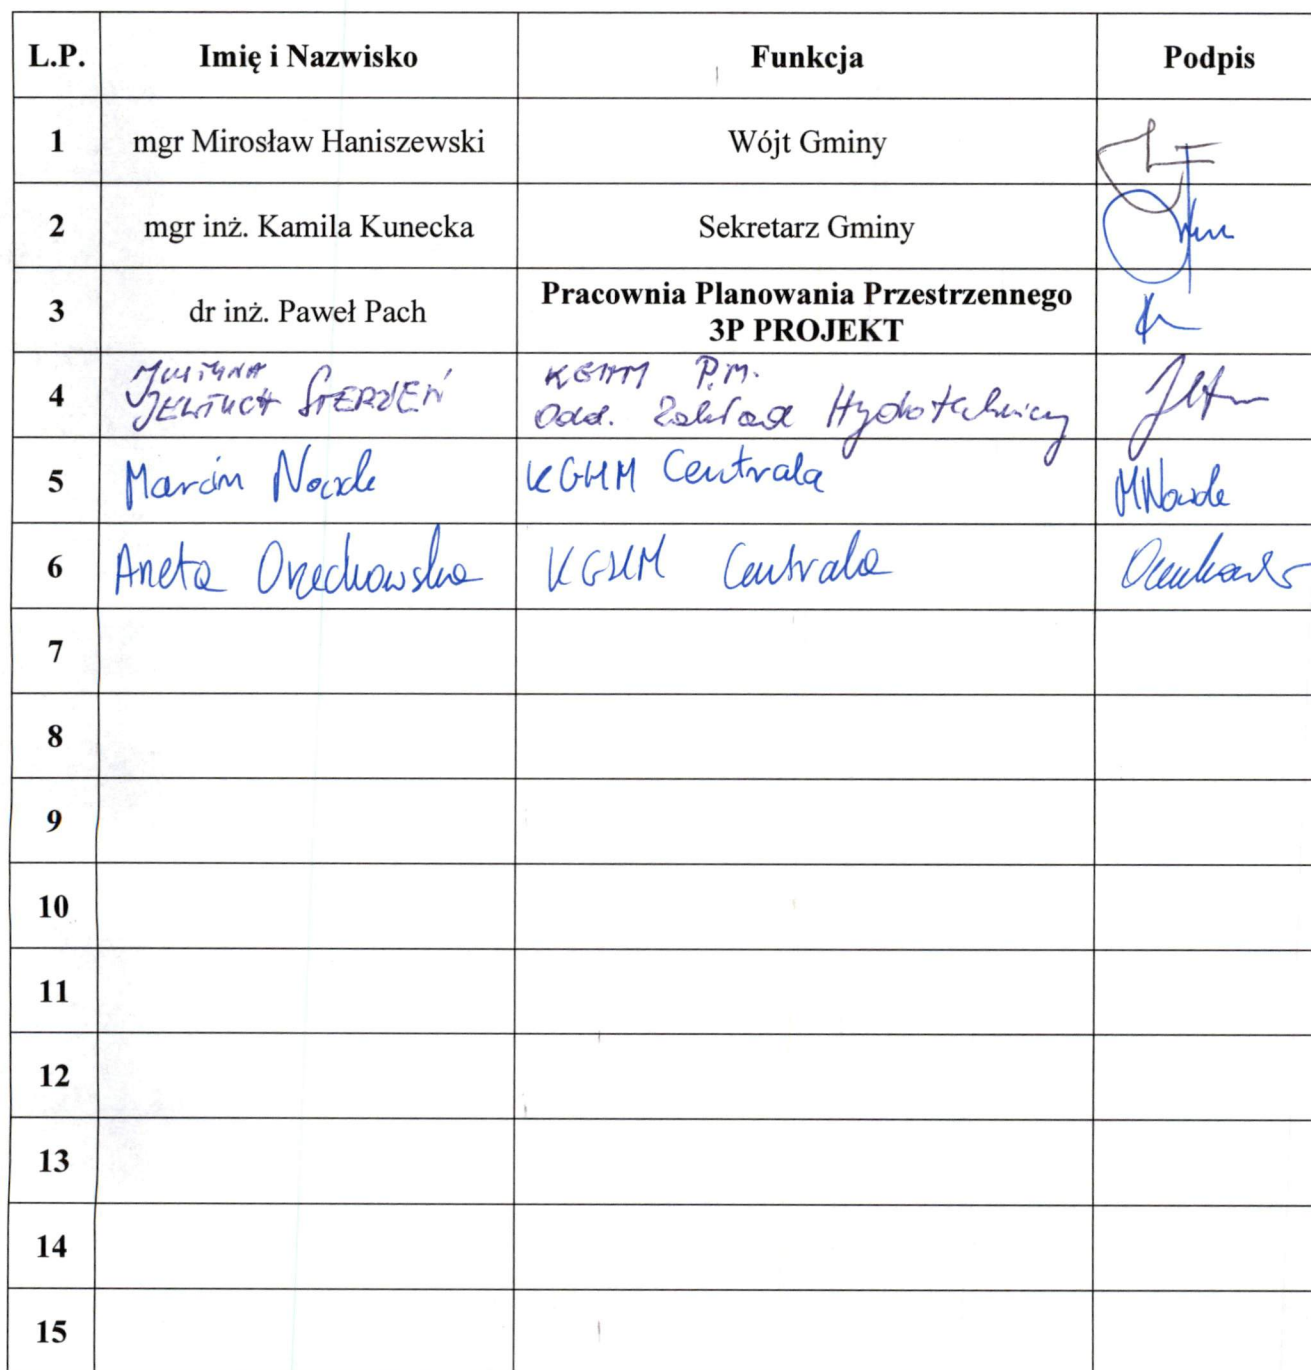 L.P. Imię i Nazwisko Funkcja Podpis
1 mgr Mirosław Haniszewski Wójt Gminy
2 mgr inż. Kamila Kunecka Sekretarz Gminy
3 dr inż. Paweł Pach Pracownia Planowania Przestrzennego
3P PROJEKT
KGHM P.M.
4 Odd. Zakład Hydrotechniczny
5 Marcin Nowak KGHM Centrala MNowak
6 Aneta Orzechowska KGHM Centrala
7
8
9
10
11
12
13
14
15